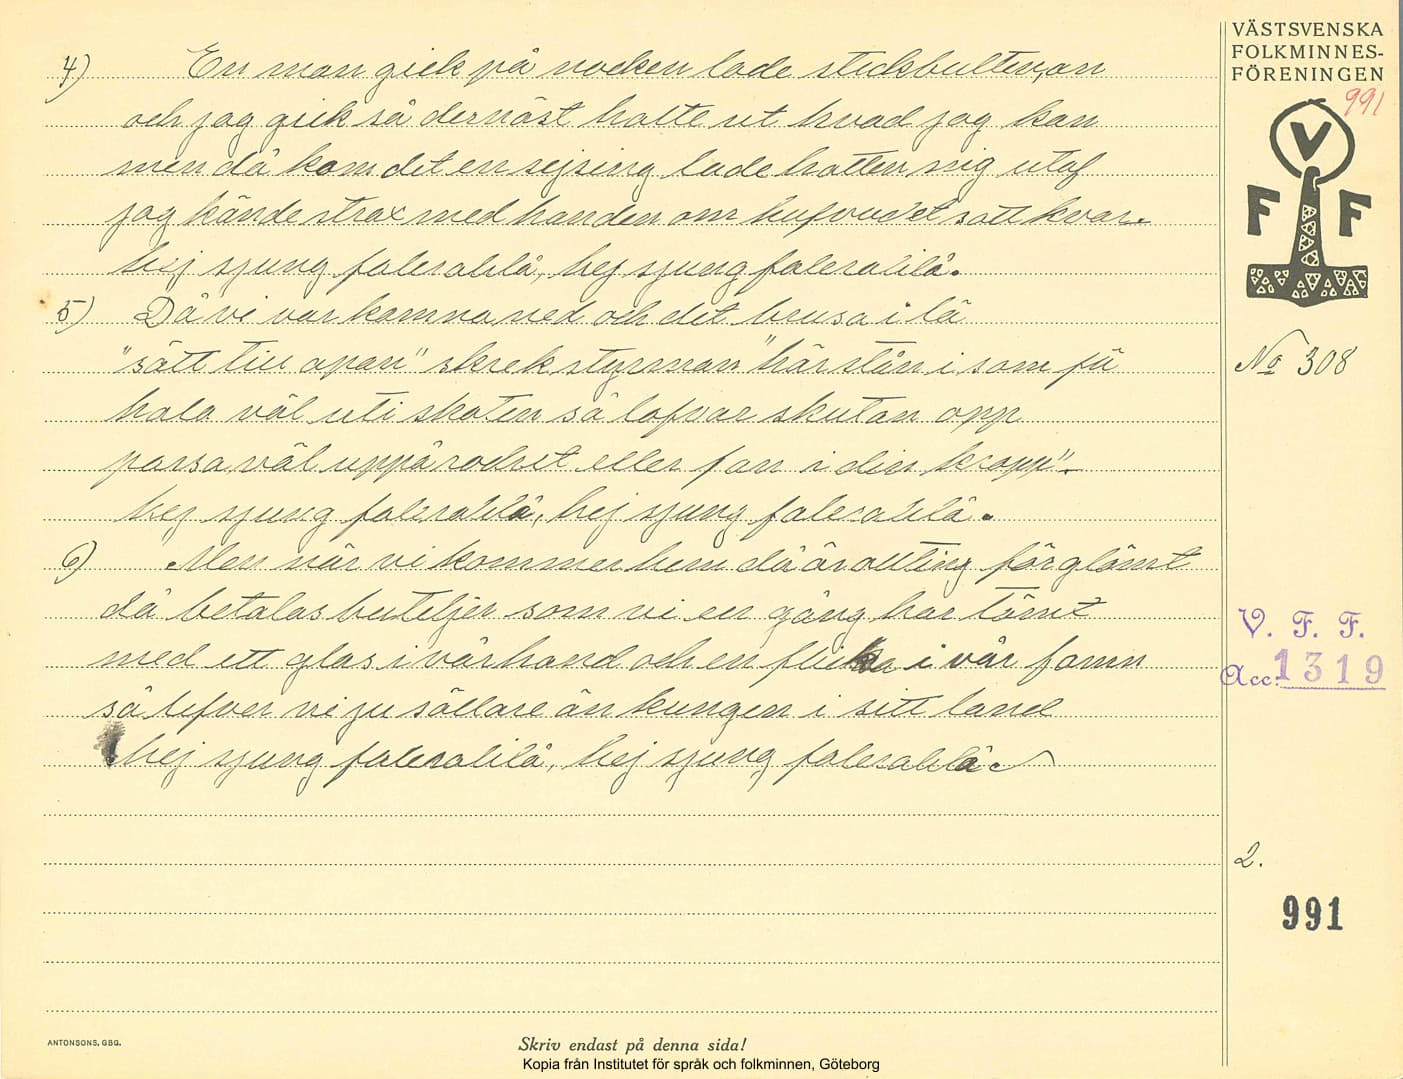 4) En man gick på nocken lade stickbulten an
och jag gick så dernäst halte ut hvad jag kan
men då kom det en sejsing lade hatten mig utaf
jag kände strax med handen om hufvudet satt kvar.
hej sjung faleralilå, hej sjung faleralilå.
5) Då vi var komna ned och det brusa i lä
"sätt till apan" skrek styrman "här stån i som fä
hala väl uti skoten så lofvar skutan opp
passa väl uppå rodret eller fan i din kropp".
hej sjung faleralilå, hej sjung faleralilå.
6) Men när vi kommer hem då är allting förglömt
då betalas buteljer som vi en gång har tömt
med ett glas i vår hand och en flicka i vår famn
så lefver vi ju sällare än kungen i sitt land
hej sjung faleralilå, hej sjung faleralilå.
VÄSTSVENSKA
FOLKMINNES-
FÖRENINGEN
991
V
F F
No 308
V. F. F.
Acc. 1319
2.
991
ANTONSONS, GBG.
Skriv endast på denna sida!
Kopia från Institutet för språk och folkminnen, Göteborg